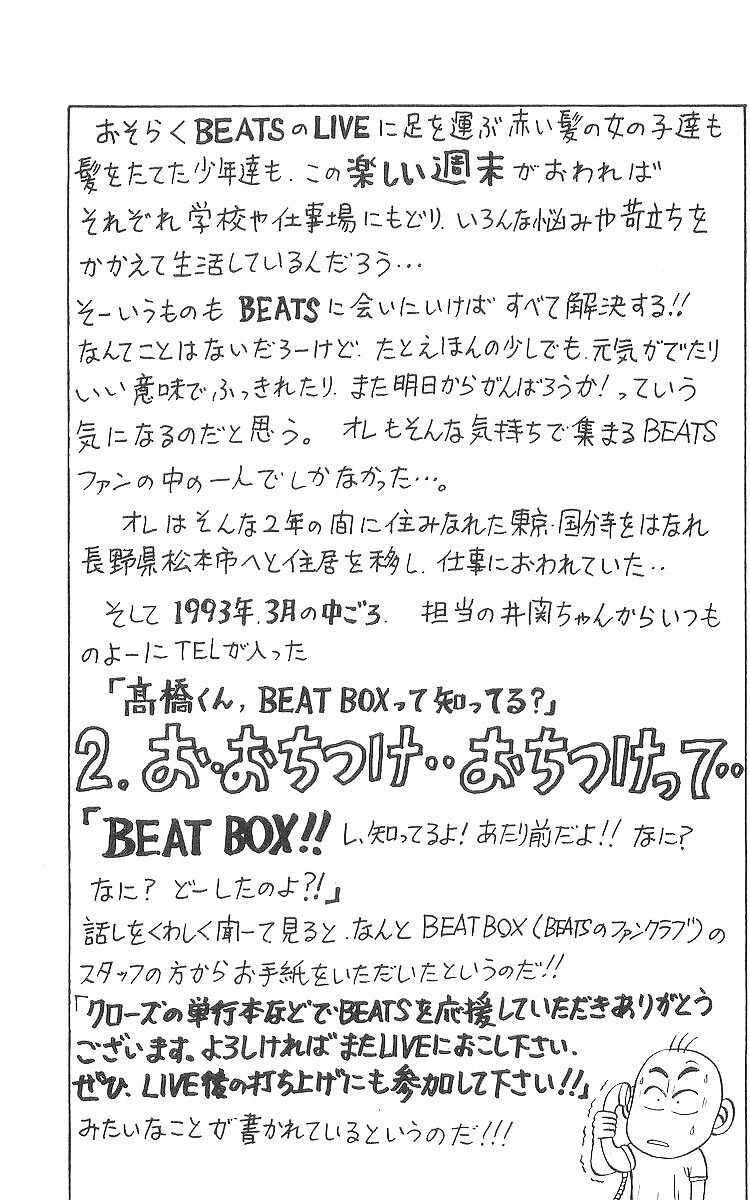 おそらくBEATSのLIVEに足を運ぶ赤い髪の女の子達も
髪をたてた少年達も、この楽しい週末がおわれば
それぞれ学校や仕事場にもどり、いろんな悩みや苛立ちを
かかえて生活しているんだろう…
そーいうものも BEATSに会いにいけば すべて解決する!!
なんてことはないだろーけど、たとえほんの少しでも、元気がでたり
いい意味でふっきれたり、また明日からがんばろうか!っていう
気になるのだと思う。 オレもそんな気持ちで集まるBEATS
ファンの中の一人でしかなかった…。
オレはそんな2年の間に住みなれた東京・国分寺をはなれ
長野県松本市へと住居を移し、仕事におわれていた‥
そして 1993年、3月の中ごろ、 担当の井関ちゃんからいつも
のよーにTELが入った
「髙橋くん, BEAT BOXって知ってる?」
2. お・おちつけ‥おちつけって‥
「BEAT BOX!! し、知ってるよ! あたり前だよ!! なに?
なに? どーしたのよ?!」
話しをくわしく聞いて見ると、なんとBEAT BOX(BEATSのファンクラブ)の
スタッフの方からお手紙をいただいたというのだ!!
「クローズの単行本などでBEATSを応援していただきありがとう
ございます。よろしければまたLIVEにおこし下さい、
ぜひ、LIVE後の打ち上げにも参加して下さい!!」
みたいなことが書かれているというのだ!!!